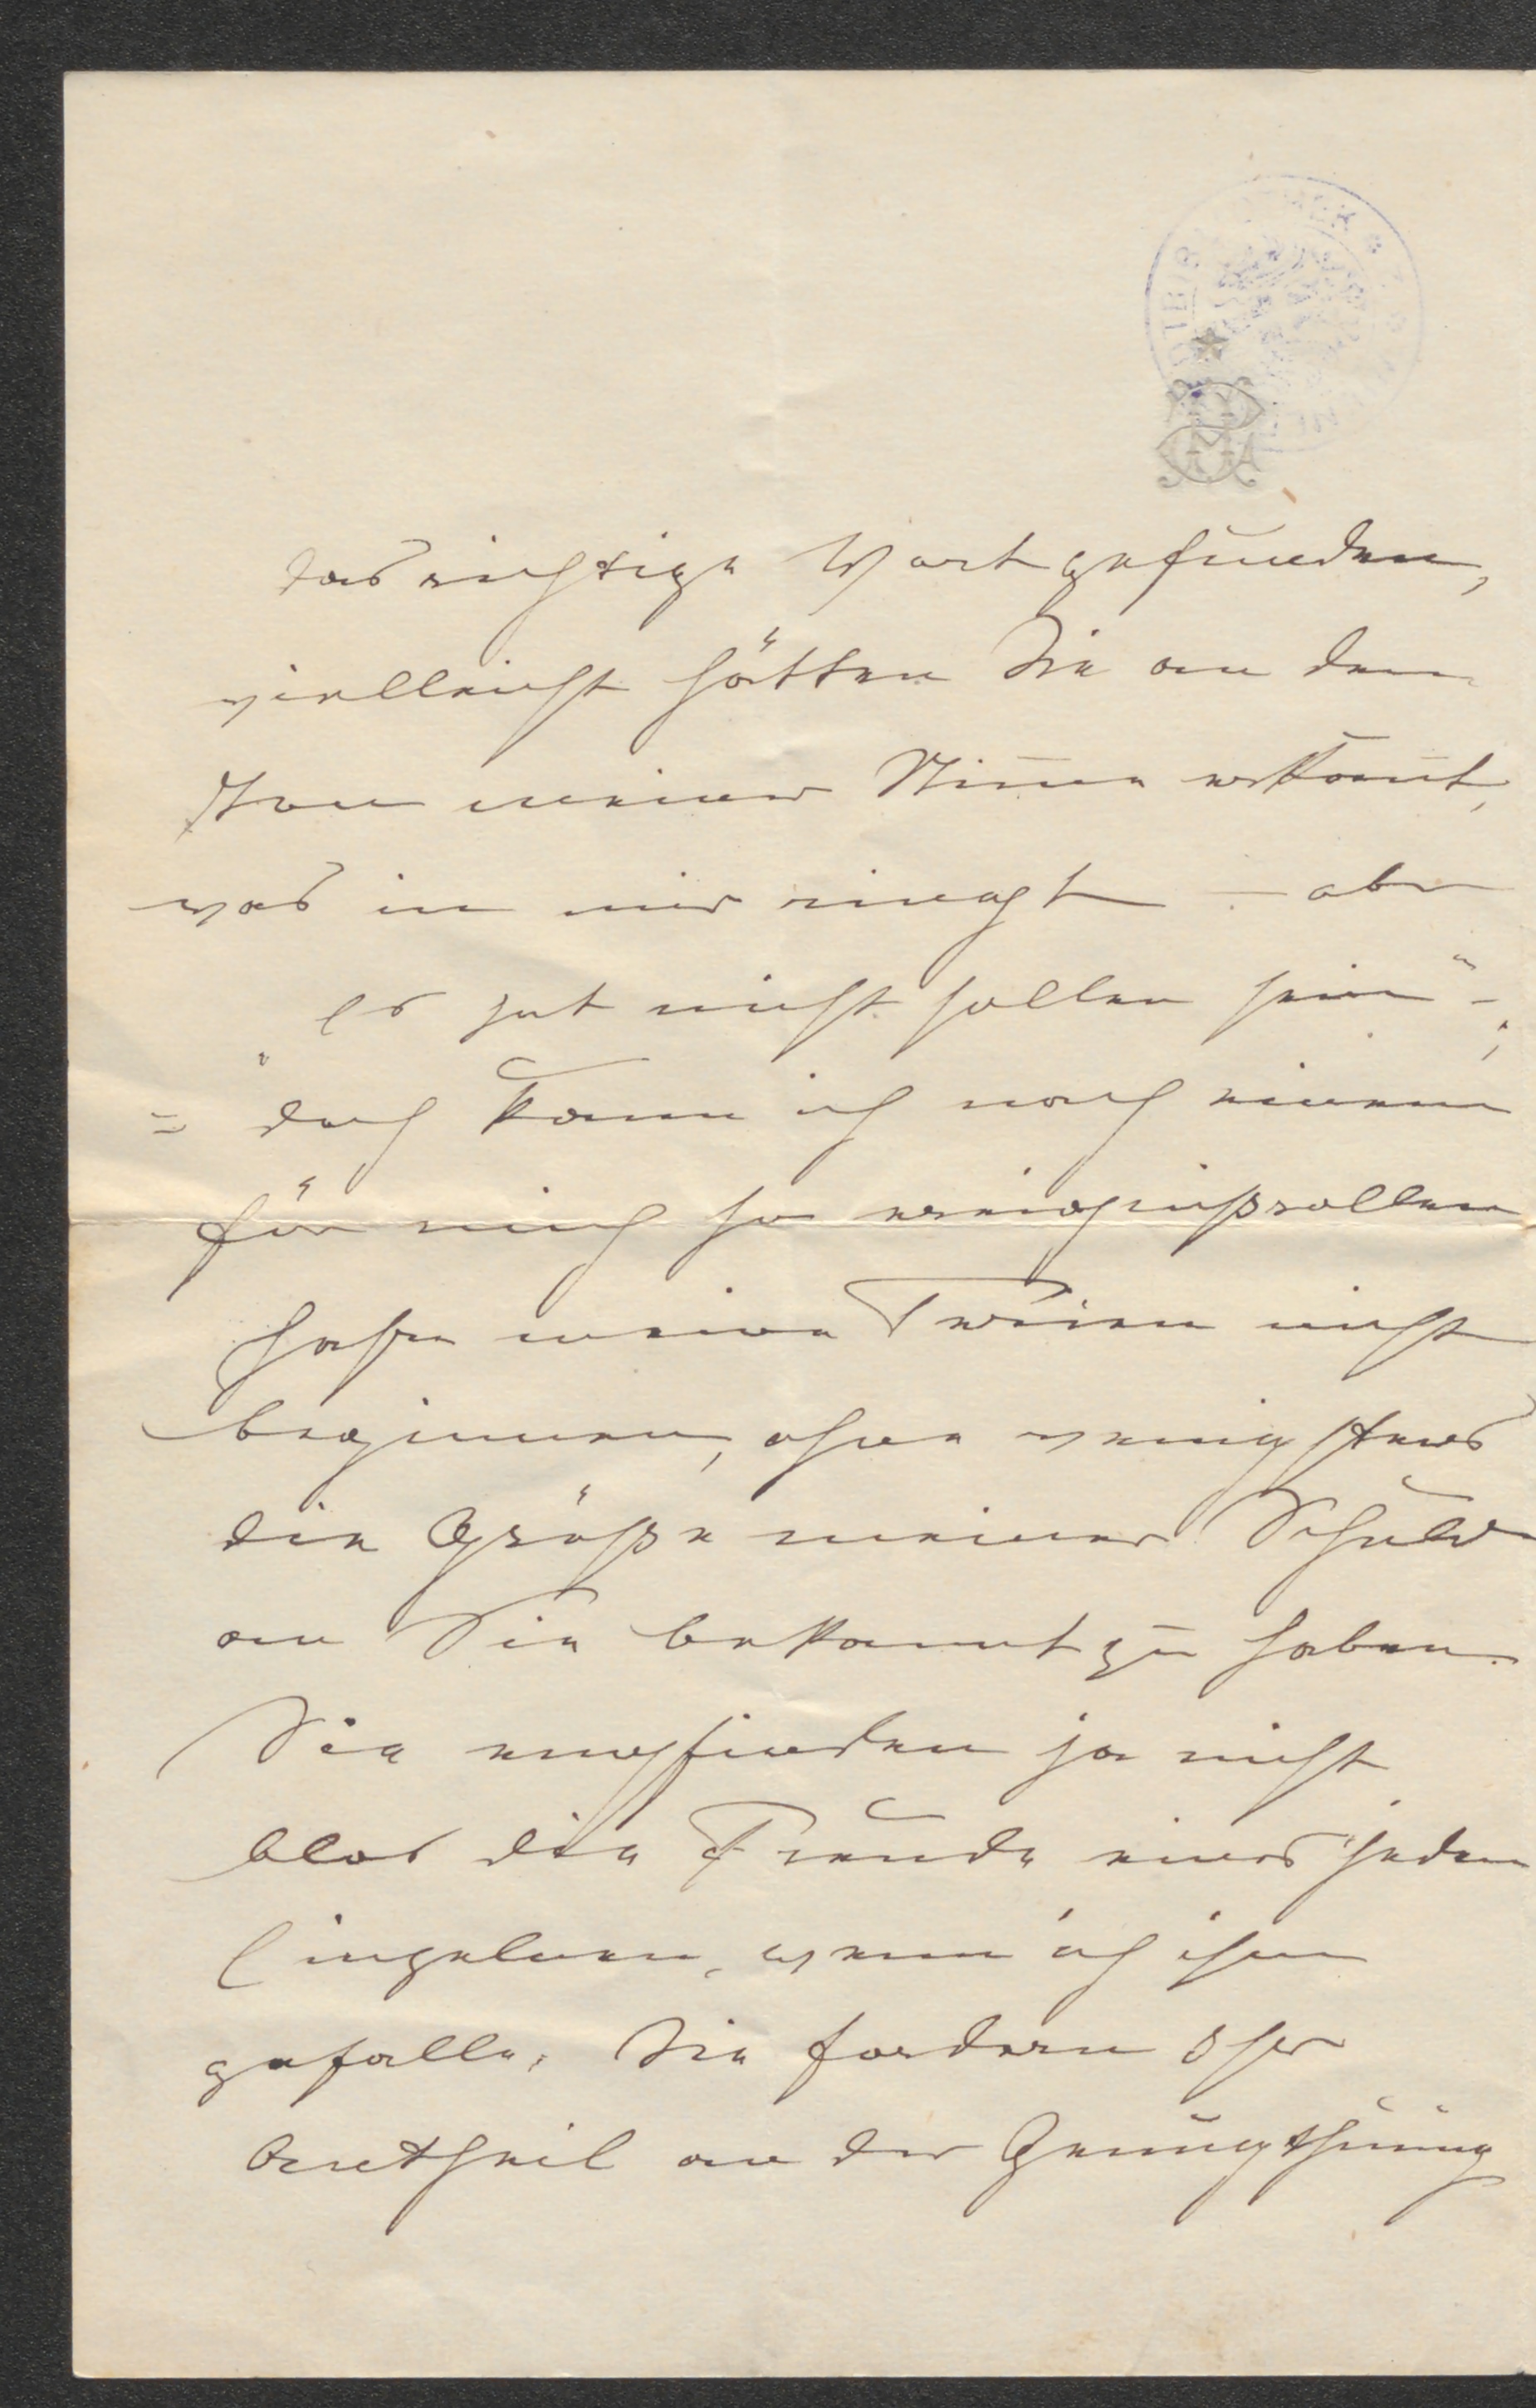 das richtige Wort gefunden,
vielleicht hätten Sie an dem
Ton meiner Stim̄e erkan̄t,
was in mir ringt – aber
es hat nicht sollen sein" –,
= "doch kann ich nach einem
für mich so ereignißvollen
Jahre meine Ferien nicht
beginnen, ohne wenigstens
die Größe meiner Schuld
an Sie bekannt zu haben.
Sie empfinden ja nicht
blos die Freude eines jeden
Einzelnen, wenn ich ihm
gefalle, Sie fordern Ihr
Antheil an der Genugthuung